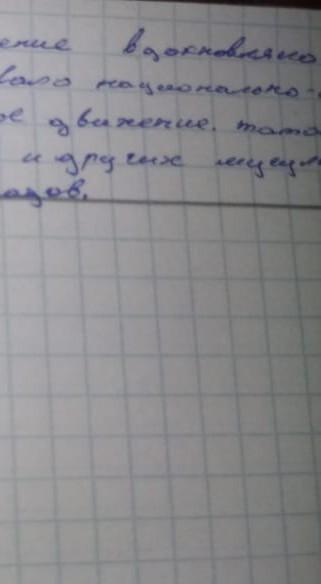 ение вдохновляло
вало национально-
ое движение. тата
и других мусуль
одов.